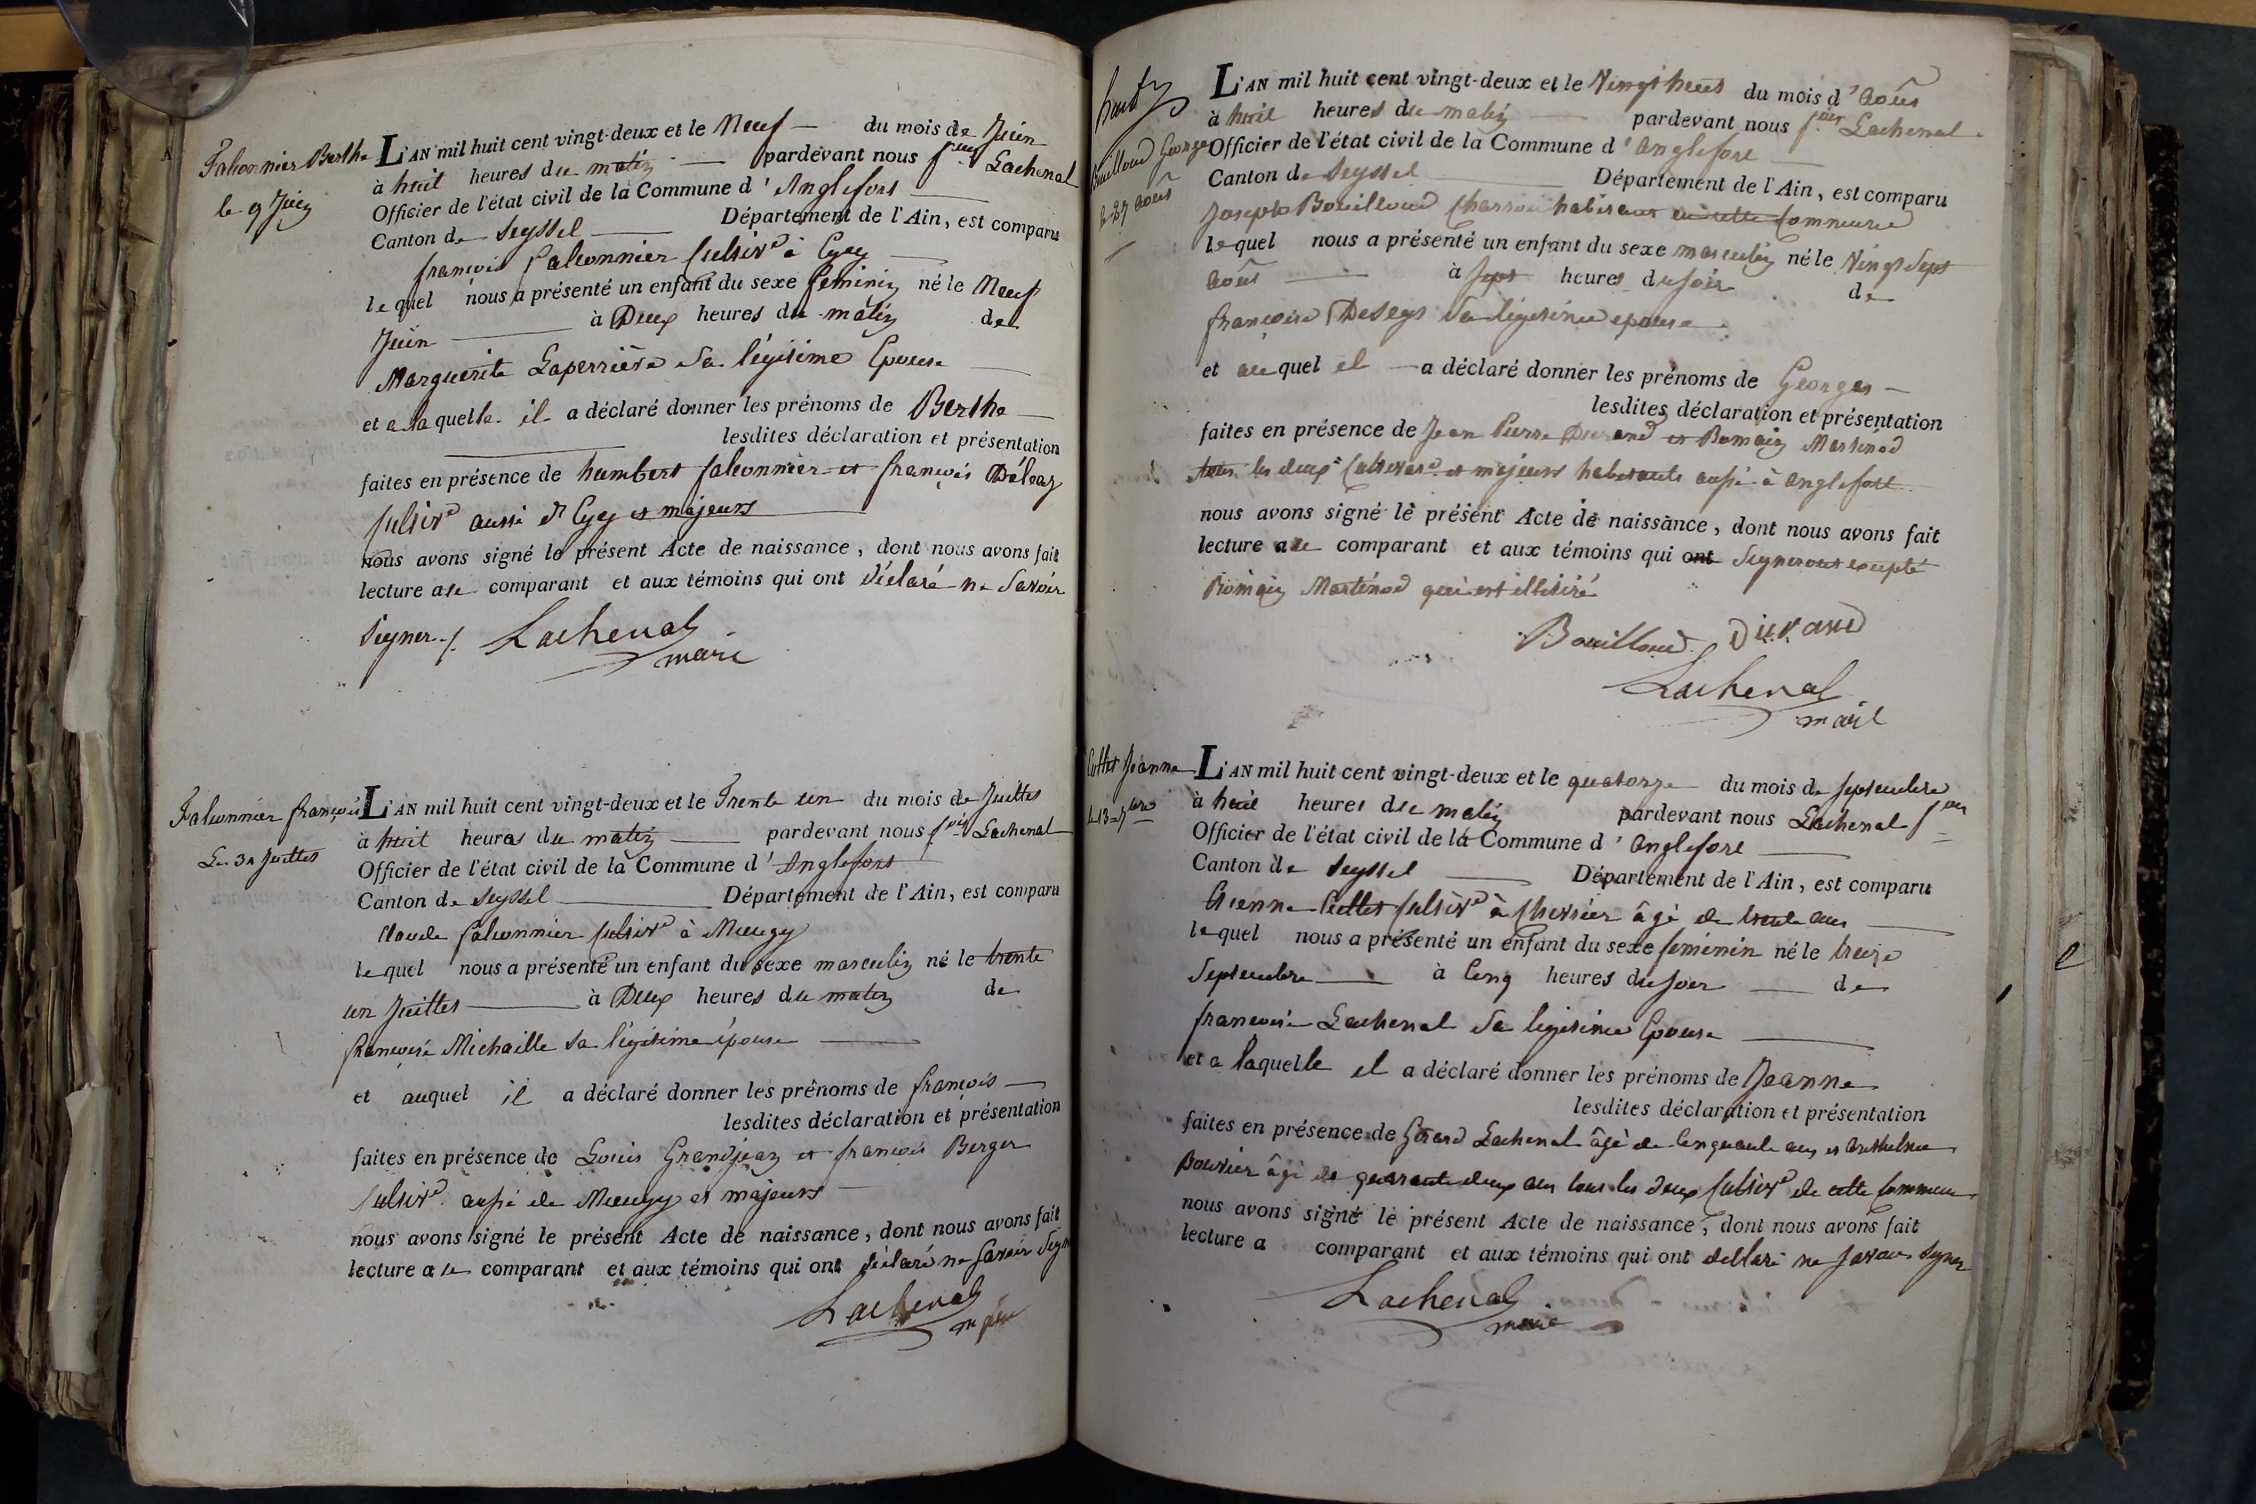 Falconnier Berthe
le 9 Juin
L'AN mil huit cent vingt-deux et le Neuf du mois de Juin
à huit heures du matin pardevant nous f.cois Lachenal
Officier de l'état civil de la Commune d'Anglefort
Canton de Seyssel Département de l'Ain, est comparu
françois falconnier Cultiv.r à
lequel nous a présenté un enfant du sexe féminin né le Neuf
Juin à Deux heures du matin de
Marguerite Laperrière Sa légitime Epouse
et a laquelle il a déclaré donner les prénoms de Berthe
lesdites déclaration et présentation
faites en présence de humbert falconnier et françois
Cultiv.r aussi et majeurs
nous avons signé le présent Acte de naissance, dont nous avons fait
lecture a le comparant et aux témoins qui ont déclaré ne Savoir
Signer ./. Lachenal
maire
Falconnier françois
Le 31 Juillet
L'AN mil huit cent vingt-deux et le Trente un du mois de Juillet
à huit heures du matin pardevant nous f.cois Lachenal
Officier de l'état civil de la Commune d'Anglefort
Canton de Seyssel Département de l'Ain, est comparu
Claude falconnier Cultiv.r à
lequel nous a présenté un enfant du sexe masculin né le trente
un Juillet à Deux heures du matin de
françoise Michaille Sa légitime épouse
et auquel il a déclaré donner les prénoms de françois
lesdites déclaration et présentation
faites en présence de Louis Grandjean et françois Berger
Cultiv.r aussi de et majeurs
nous avons signé le présent Acte de naissance, dont nous avons fait
lecture a le comparant et aux témoins qui ont déclaré ne Savoir Sign
Lachenal
maire
Bouilloud George
le 27 août
L'AN mil huit cent vingt-deux et le Vingt huit du mois d'août
à huit heures du matin pardevant nous f.cois Lachenal
Officier de l'état civil de la Commune d'anglefort
Canton de Seyssel Département de l'Ain, est comparu
Joseph Bouilloud Charron habitant en cette Commune
lequel nous a présenté un enfant du sexe masculin né le Vingt Sept
août à Sept heures du Soir de
françoise Sa légitime epouse
et auquel il a déclaré donner les prénoms de Georges
lesdites déclaration et présentation
faites en présence de Jean Pierre Durand et Romain Martinod
tous les deux Cultivat.r et majeurs habitants aussi à anglefort
nous avons signé le présent Acte de naissance, dont nous avons fait
lecture a le comparant et aux témoins qui ont Signé excepté
Romain Martinod qui est illitéré
Bouilloud Durand
Lachenal
maire
Cottet Jeanne
le 13 7bre
L'AN mil huit cent vingt-deux et le quatorze du mois de Septembre
à huit heures du matin pardevant nous Lachenal f.cois
Officier de l'état civil de la Commune d'anglefort
Canton de Seyssel Département de l'Ain, est comparu
Etienne Cottet Cultiv.r à âgé de trente ans
lequel nous a présenté un enfant du sexe feminin né le treize
Septembre à Cinq heures du Soir de
françoise Lachenal Sa légitime Epouse
et a laquelle il a déclaré donner les prénoms de Jeanne
lesdites déclaration et présentation
faites en présence de Gérard Lachenal âgé de Cinquante ans et Anthelme
Bouvier âgé de quarante deux ans tous les deux Cultiv.r de cette Commune
nous avons signé le présent Acte de naissance, dont nous avons fait
lecture a comparant et aux témoins qui ont déclaré ne Savoir Signer
Lachenal
maire